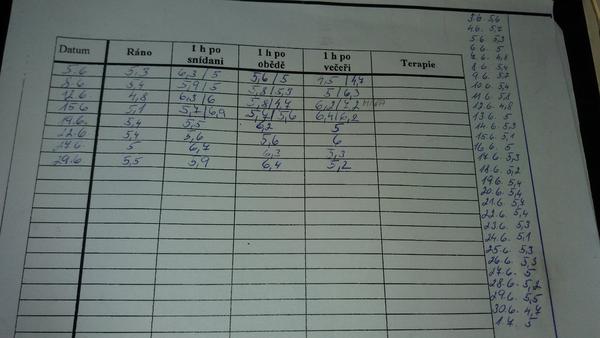 Datum Ráno 1 h po snídani 1 h po obědě 1 h po večeři Terapie
5.6 5,3 6,3/5 5,6/5 4,7
8.6 5,4 5,9/5 5,8/5,3 5/6,3
12.6 4,8 6,3/6 5,8/4,7 6,2/7,2
15.6 5,1 5,7/6,9 5,7/5,6 6,4/6,2
19.6. 5,4 5,5 6,2 5
22.6 5,4 5,6 5,6 6
27.6. 5 6,7 6,3 5,3
29.6 5,5 5,9 6,4 5,2
3.6. 5,6
4.6. 5,7
5.6 5,3
6.6. 5
7.6. 4,8
8.6 5,4
9.6. 5,7
10.6. 5,4
11.6. 5,1
12.6. 4,8
13.6 5
14.6. 5,3
15.6. 5,1
16.6. 5
17.6. 5,3
18.6. 5,2
19.6. 5,4
20.6. 5,4
21.6. 5,7
22.6. 5,4
23.6. 5,3
24.6. 5,1
25.6. 5,3
26.6. 5,3
27.6. 5
28.6. 5,2
29.6. 5,5
30.6. 4,7
1.7. 5